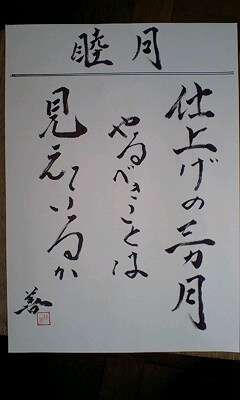 睦月
仕上げの三カ月
やるべきことは
見えているか